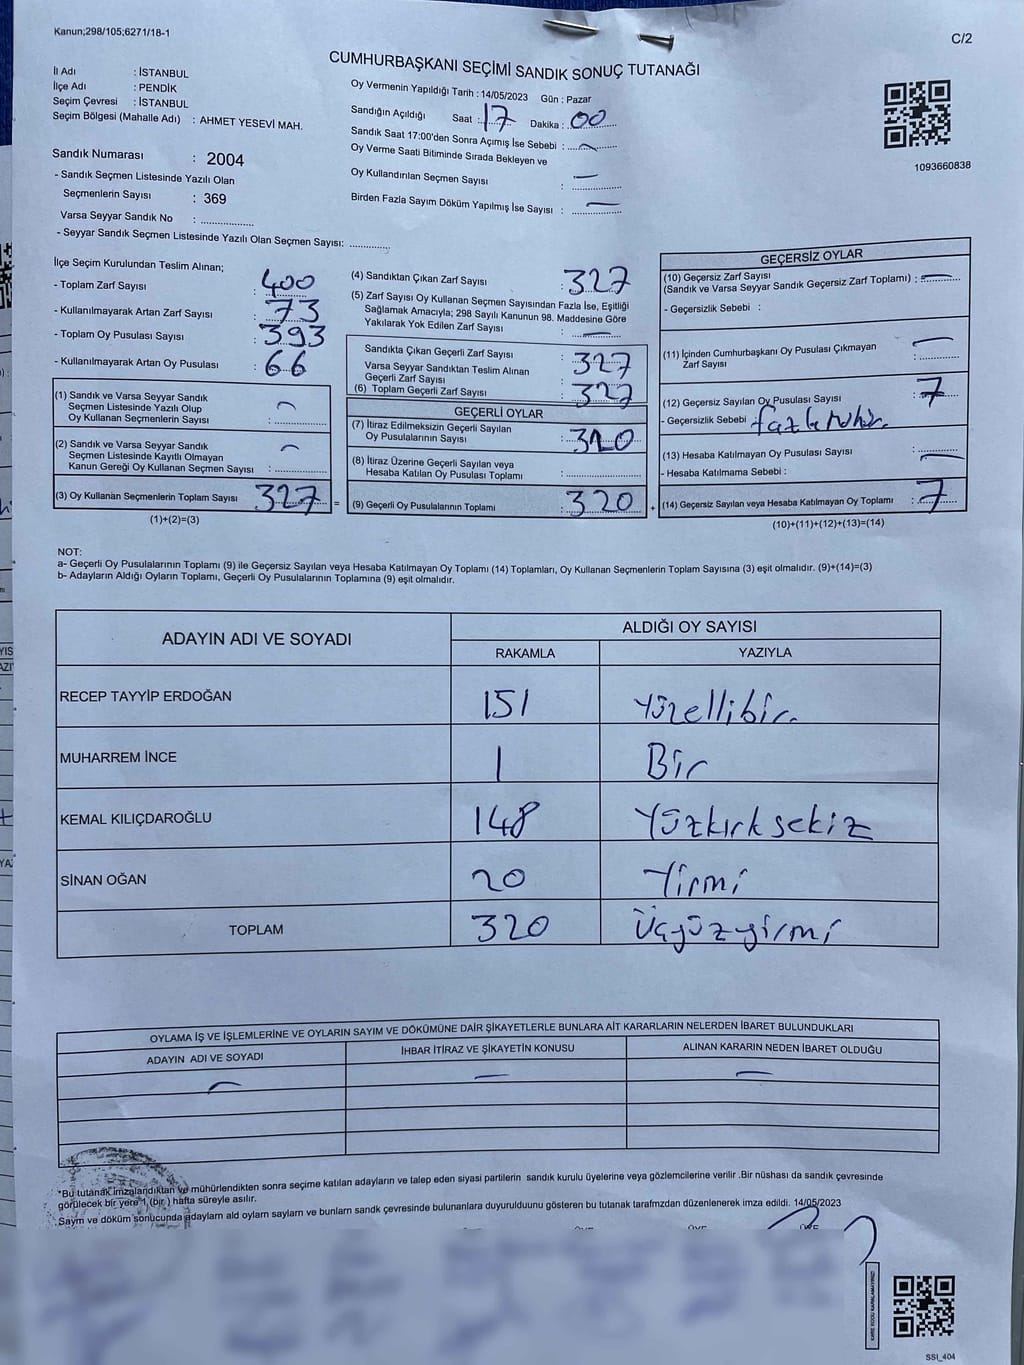 Kanun;298/105;6271/18-1
C/2
CUMHURBAŞKANI SEÇİMİ SANDIK SONUÇ TUTANAĞI
İl Adı : İSTANBUL
İlçe Adı : PENDİK
Seçim Çevresi : İSTANBUL
Seçim Bölgesi (Mahalle Adı) : AHMET YESEVİ MAH.
Sandık Numarası : 2004
- Sandık Seçmen Listesinde Yazılı Olan
Seçmenlerin Sayısı : 369
Varsa Seyyar Sandık No : ..................
- Seyyar Sandık Seçmen Listesinde Yazılı Olan Seçmen Sayısı: ..............
Oy Vermenin Yapıldığı Tarih : 14/05/2023 Gün : Pazar
Sandığın Açıldığı Saat : 17 Dakika : 00
Sandık Saat 17:00'den Sonra Açımış İse Sebebi : –
Oy Verme Saati Bitiminde Sırada Bekleyen ve
Oy Kullandırılan Seçmen Sayısı : –
Birden Fazla Sayım Döküm Yapılmış İse Sayısı : –
1093660838
İlçe Seçim Kurulundan Teslim Alınan;
- Toplam Zarf Sayısı : 400
- Kullanılmayarak Artan Zarf Sayısı : 73
- Toplam Oy Pusulası Sayısı : 393
- Kullanılmayarak Artan Oy Pusulası : 66
(1) Sandık ve Varsa Seyyar Sandık
Seçmen Listesinde Yazılı Olup
Oy Kullanan Seçmenlerin Sayısı : –
(2) Sandık ve Varsa Seyyar Sandık
Seçmen Listesinde Kayıtlı Olmayan
Kanun Gereği Oy Kullanan Seçmen Sayısı : –
(3) Oy Kullanan Seçmenlerin Toplam Sayısı 327 =
(1)+(2)=(3)
(4) Sandıktan Çıkan Zarf Sayısı : 327
(5) Zarf Sayısı Oy Kullanan Seçmen Sayısından Fazla İse, Eşitliği
Sağlamak Amacıyla; 298 Sayılı Kanunun 98. Maddesine Göre
Yakılarak Yok Edilen Zarf Sayısı : –
Sandıkta Çıkan Geçerli Zarf Sayısı : 327
Varsa Seyyar Sandıktan Teslim Alınan
Geçerli Zarf Sayısı :
(6) Toplam Geçerli Zarf Sayısı : 327
GEÇERLİ OYLAR
(7) İtiraz Edilmeksizin Geçerli Sayılan
Oy Pusulalarının Sayısı : 320
(8) İtiraz Üzerine Geçerli Sayılan veya
Hesaba Katılan Oy Pusulası Toplamı :
(9) Geçerli Oy Pusulalarının Toplamı : 320 +
GEÇERSİZ OYLAR
(10) Geçersiz Zarf Sayısı
(Sandık ve Varsa Seyyar Sandık Geçersiz Zarf Toplamı) : –
- Geçersizlik Sebebi :
(11) İçinden Cumhurbaşkanı Oy Pusulası Çıkmayan
Zarf Sayısı : –
(12) Geçersiz Sayılan Oy Pusulası Sayısı : 7
- Geçersizlik Sebebi : fazla mühür.
(13) Hesaba Katılmayan Oy Pusulası Sayısı : –
- Hesaba Katılmama Sebebi :
(14) Geçersiz Sayılan veya Hesaba Katılmayan Oy Toplamı : 7
(10)+(11)+(12)+(13)=(14)
NOT:
a- Geçerli Oy Pusulalarının Toplamı (9) ile Geçersiz Sayılan veya Hesaba Katılmayan Oy Toplamı (14) Toplamları, Oy Kullanan Seçmenlerin Toplam Sayısına (3) eşit olmalıdır. (9)+(14)=(3)
b- Adayların Aldığı Oyların Toplamı, Geçerli Oy Pusulalarının Toplamına (9) eşit olmalıdır.
ADAYIN ADI VE SOYADI
ALDIĞI OY SAYISI
RAKAMLA YAZIYLA
RECEP TAYYİP ERDOĞAN 151 Yüzellibir.
MUHARREM İNCE 1 Bir
KEMAL KILIÇDAROĞLU 148 Yüzkırksekiz
SİNAN OĞAN 20 Yirmi
TOPLAM 320 Üçyüzyirmi
OYLAMA İŞ VE İŞLEMLERİNE VE OYLARIN SAYIM VE DÖKÜMÜNE DAİR ŞİKAYETLERLE BUNLARA AİT KARARLARIN NELERDEN İBARET BULUNDUKLARI
ADAYIN ADI VE SOYADI İHBAR İTİRAZ VE ŞİKAYETİN KONUSU ALINAN KARARIN NEDEN İBARET OLDUĞU
– – –
*Bu tutanak imzalandıktan ve mühürlendikten sonra seçime katılan adayların ve talep eden siyasi partilerin sandık kurulu üyelerine veya gözlemcilerine verilir .Bir nüshası da sandık çevresinde
görülecek bir yere 1 (bir ) hafta süreyle asılır.
Saym ve döküm sonucunda adaylarn ald oylarn saylarn ve bunlarn sandk çevresinde bulunanlara duyurulduunu gösteren bu tutanak tarafmzdan düzenlenerek imza edildi. 14/05/2023
KARE KODU KAPALAMAYINIZ!
SSI_404